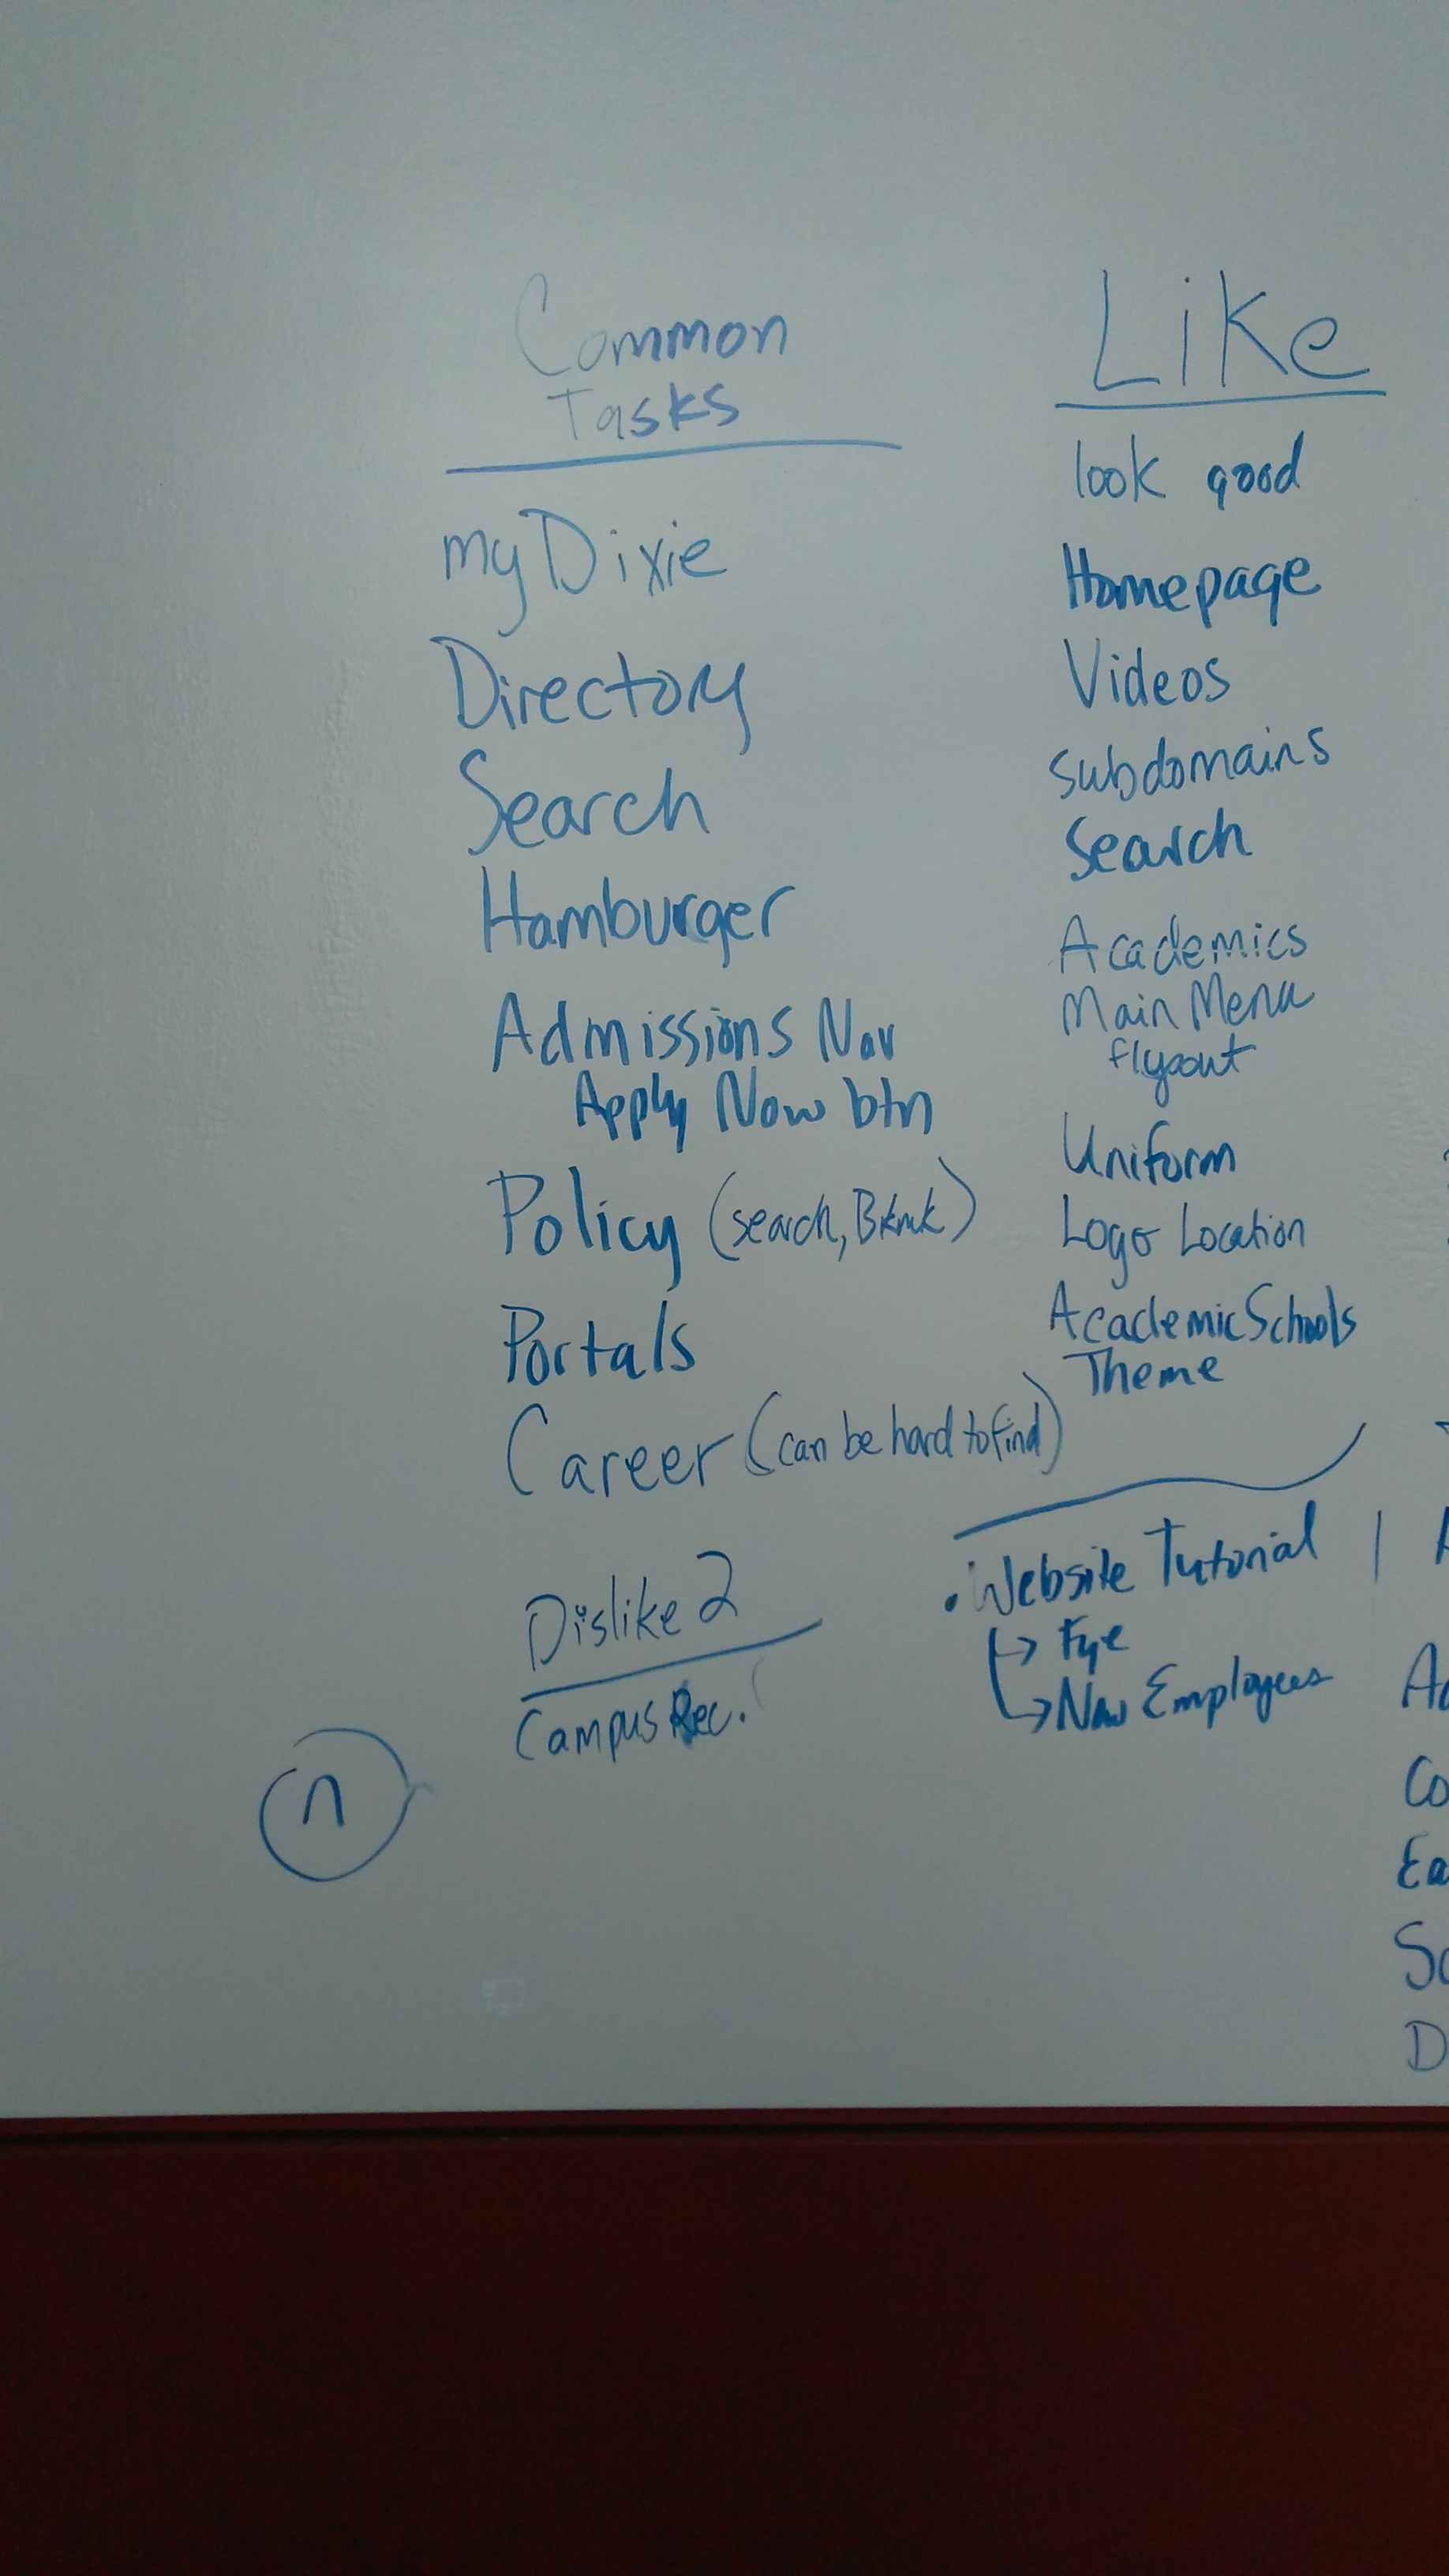 Common
Tasks
myDixie
Directory
Search
Hamburger
Admissions Nav
Apply Now btn
Policy (search, Bkmk)
Portals
Career (can be hard to find)
Dislike 2
Campus Rec.
n
Like
look good
Homepage
Videos
Subdomains
Search
Academics
Main Menu
flyout
Uniform
Logo Location
Academic Schools
Theme
• Website Tutorial
↳ Fye
↳ New Employees
Co
Ea
D